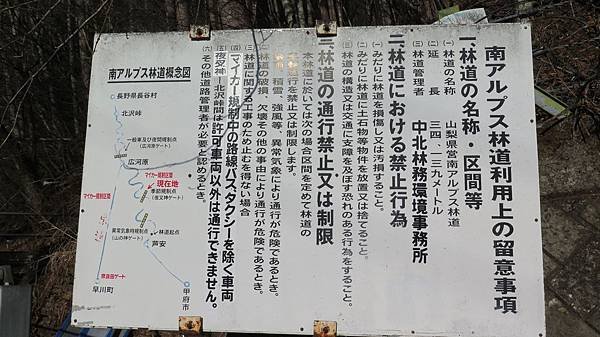 南アルプス林道利用上の留意事項
一.林道の名称・区間等
(一) 林道の名称 山梨県営南アルプス林道
(二) 延長 三四、一三九メートル
(三) 林道管理者 中北林務環境事務所
二.林道における禁止行為
(一) みだりに林道を損傷し又は汚損すること。
(二) みだりに林道に土石物等物件を放置又は捨てること。
(三) 林道の構造又は交通に支障を及ぼす恐れのある行為をすること。
三.林道の通行禁止又は制限
本林道に於いては次の場合区間を定めて林道の
通行を禁止又は制限します。
積雪、強風等、異常気象により通行が危険であるとき。
林道の破損、欠壊その他の事由により通行が危険であるとき。
(三) 林道に関する工事のため止むを得ない場合
(四) マイカー規制中の路線バス、タクシーを除く車両
(五) 夜叉神―北沢峠間は許可車両以外は通行できません。
(六) その他道路管理者が必要と認めるとき。
南アルプス林道概念図
長野県長谷村
北沢峠
一般車及び夜間規制点
(広河原ゲート)
広河原
マイカー規制区間
マイカー規制区間
現在地
季節規制点
(夜叉神ゲート)
異常気象時規制点
(山の神ゲート)
林道起点
芦安
奈良田ゲート
早川町
甲府市